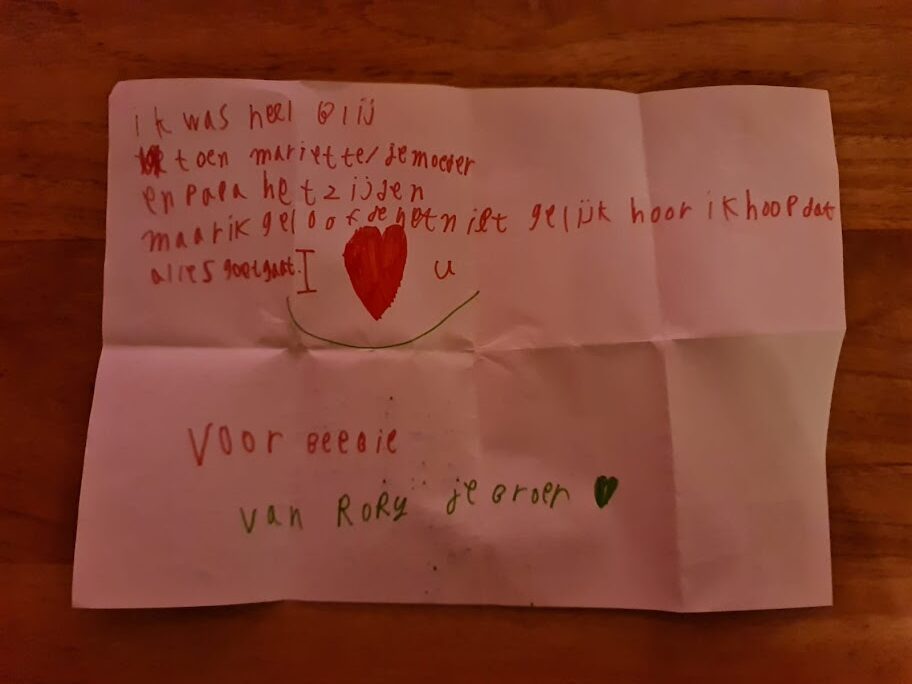 ik was heel blij
toen mariette/je moeder
en papa het zijden
maar ik geloofde het niet gelijk hoor ik hoop dat
alles goet gaat. I ♥ u
Voor beebie
van RoRy je broer ♥